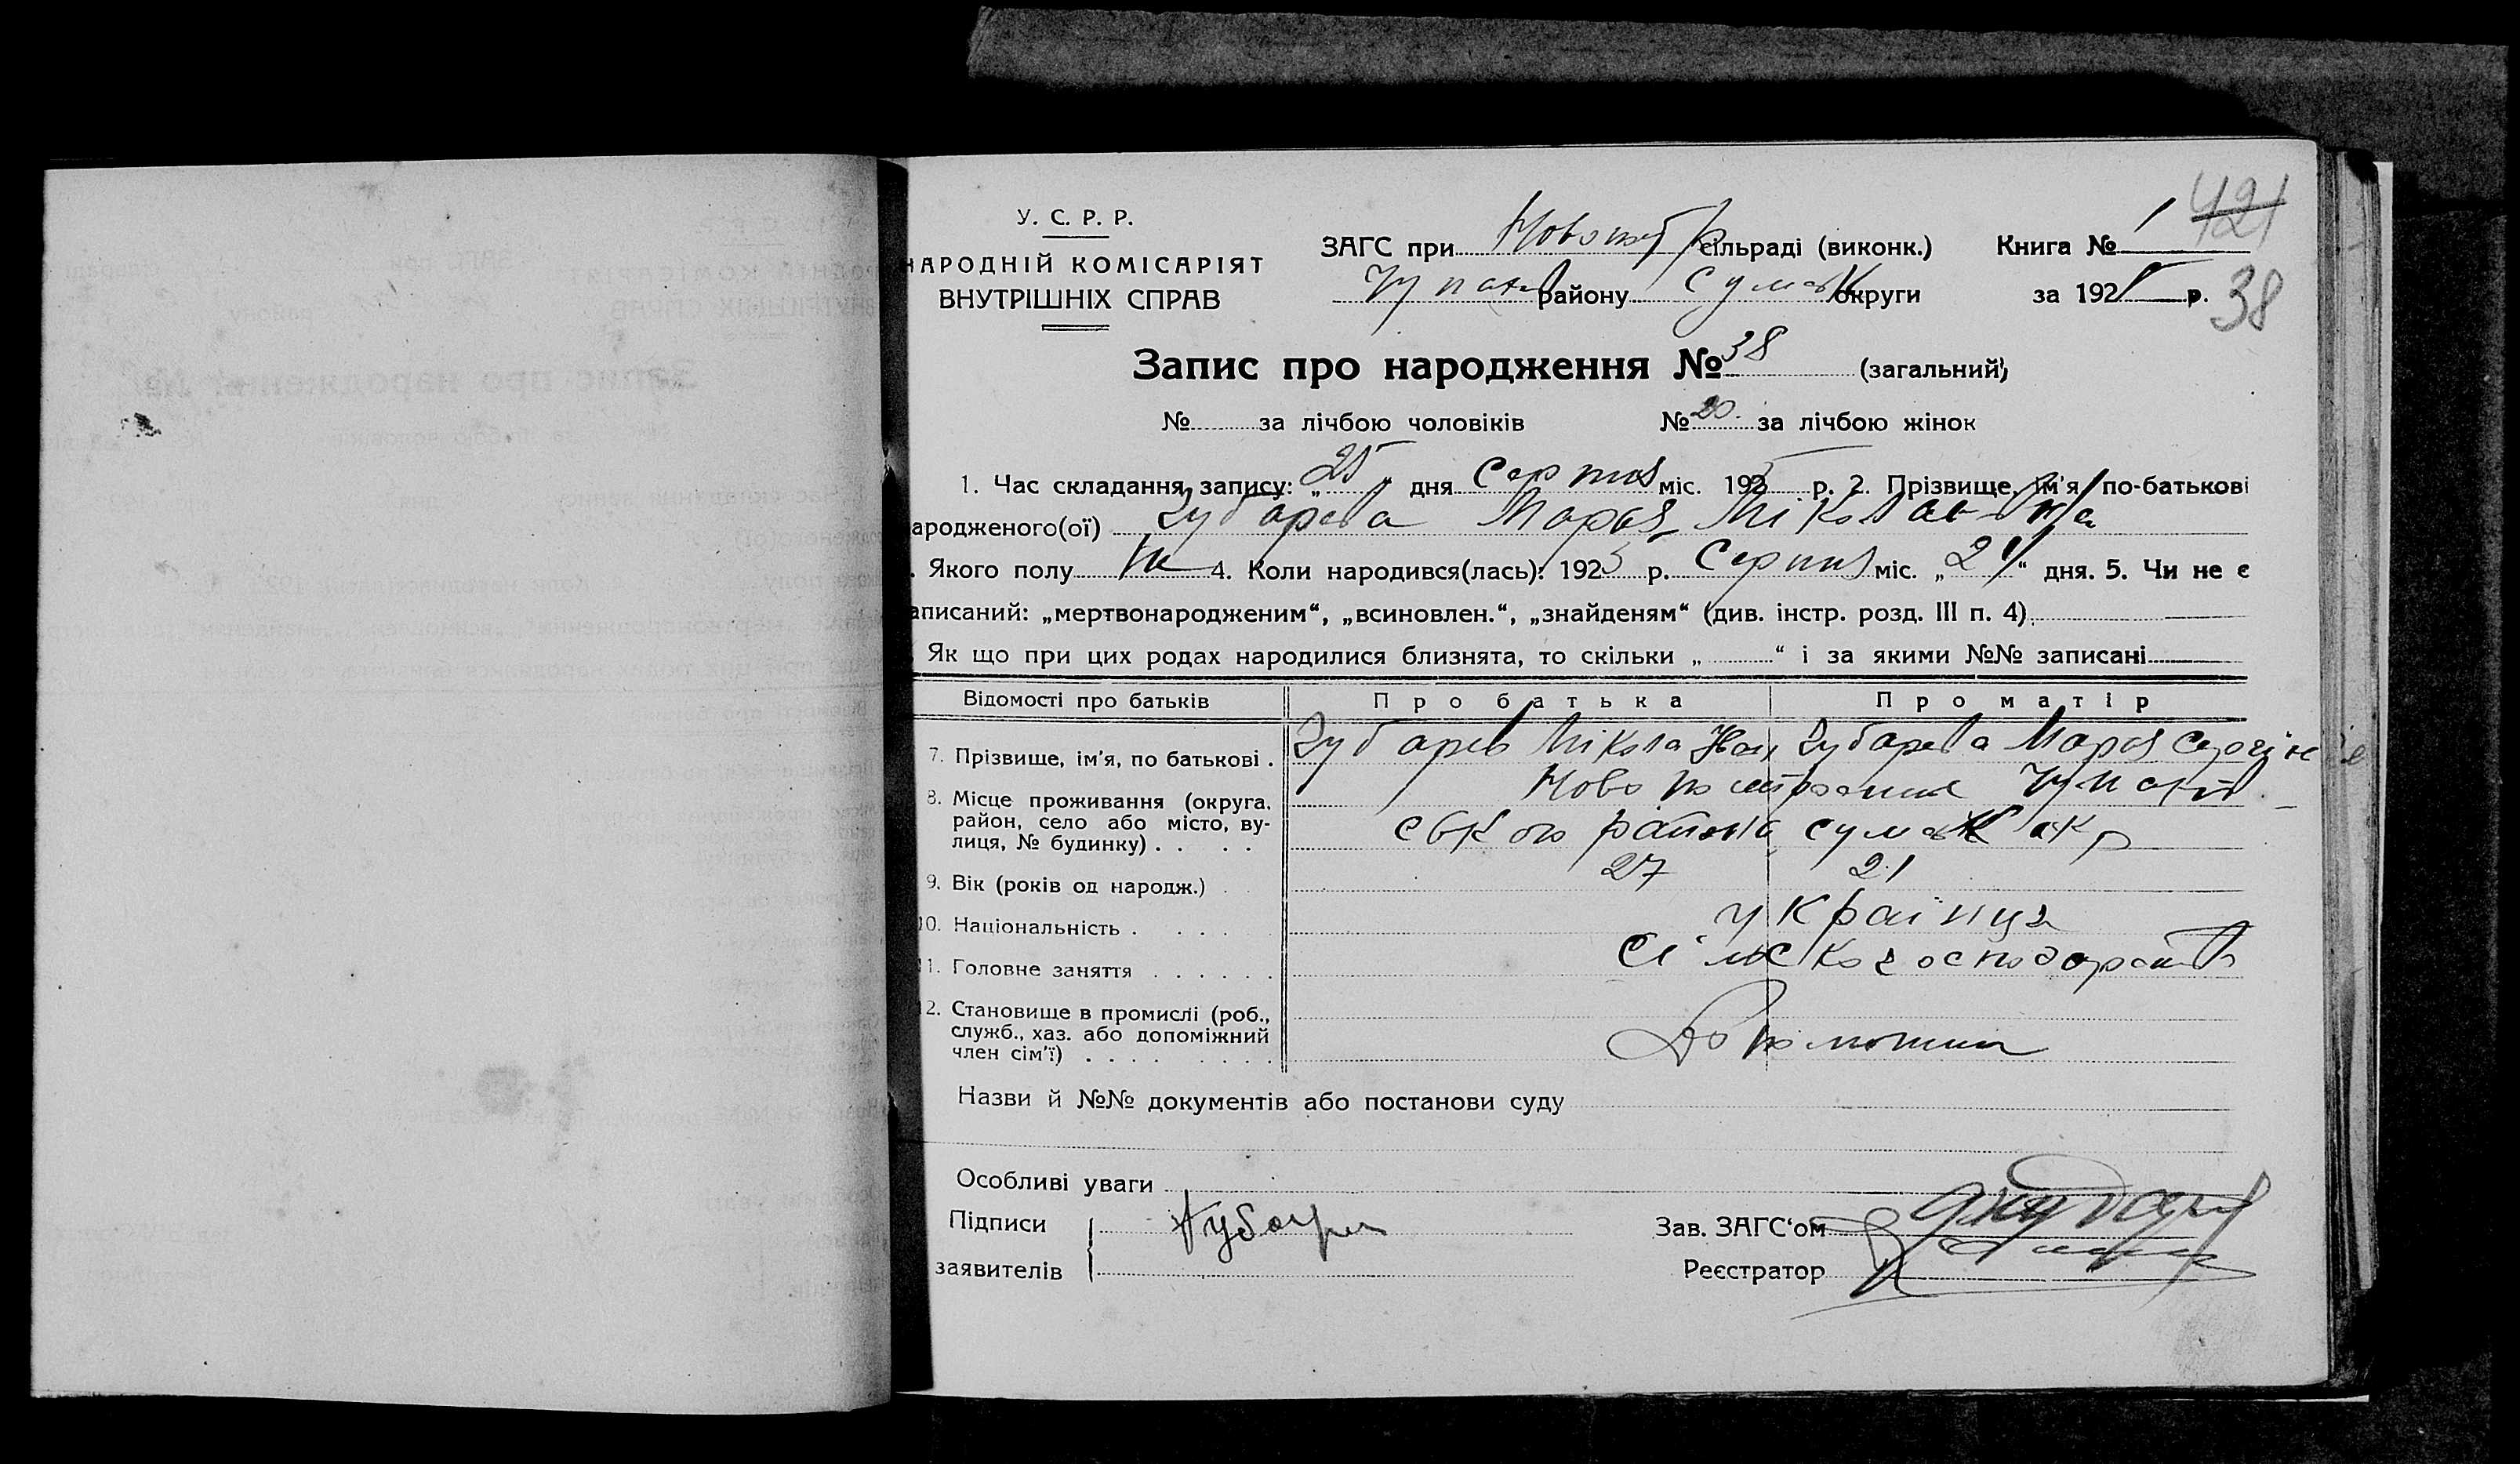 У. С. Р. Р.
НАРОДНІЙ КОМІСАРІЯТ
ВНУТРІШНІХ СПРАВ
ЗАГС при сільраді (виконк.)
району Сумськ округи
Книга № 1
421
за 1925 р.
38
Запис про народження № 38 (загальний)
№ за лічбою чоловіків № 20 за лічбою жінок
1. Час складання запису: „25" дня Серпня міс. 1925 р. 2. Прізвище, ім'я, по-батькові
ародженого(ої) Зубарева Марья Міколаівна
. Якого полу ж 4. Коли народився(лась): 1925 р. Серпня міс. „21" дня. 5. Чи не є
аписаний: „мертвонародженим“, „всиновлен.“, „знайденям“ (див. інстр. розд. III п. 4)
Як що при цих родах народилися близнята, то скільки „ “ і за якими №№ записані
Відомості про батьків Про батька Про матір
7. Прізвище, ім'я, по батькові . Зубарев Мікола Іван Зубарева Марья
8. Місце проживання (округа, район, село або місто, ву-лиця, № будинку) . . . .
ського района сумськ окр
9. Вік (років од народж.) . 27 21
10. Національність . . . . українця
11. Головне заняття . . . . . . Сільське господарство
12. Становище в промислі (роб., служб., хаз. або допоміжний член сім'ї) . . . . . . . . .
Назви й №№ документів або постанови суду
Особливі уваги
Підписи
заявителів
Зубарев
Зав. ЗАГС‘ом
Реєстратор